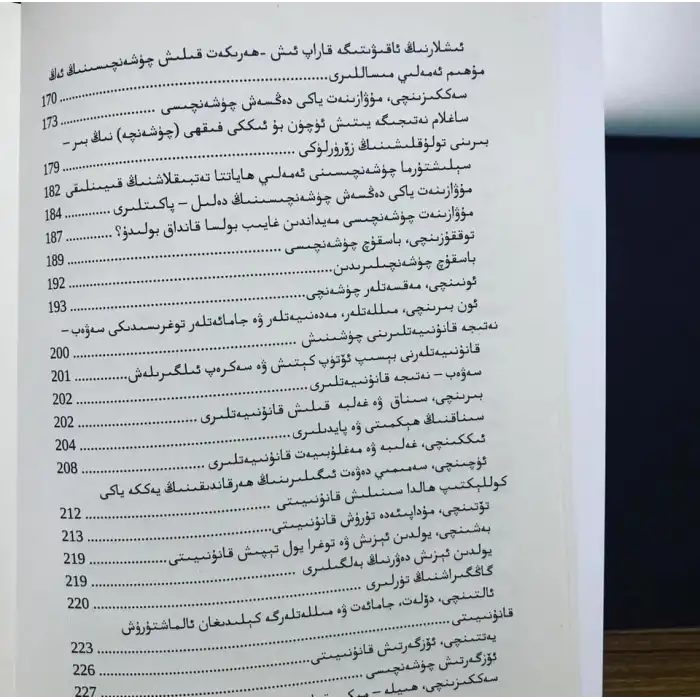 ئىشلارنىڭ ئاقىۋىتىگە قاراپ ئىش -ھەرىكەت قىلىش چۈشەنچىسىنىڭ ئەڭ
مۇھىم ئەمەلىي مىساللىرى ... 170
سەككىزىنچى، مۇۋازىنەت ياكى دەڭسەش چۈشەنچىسى ... 173
ساغلام نەتىجىگە يېتىش ئۈچۈن بۇ ئىككى فىقھى (چۈشەنچە) نىڭ بىر-
بىرىنى تولۇقلىشىنىڭ زۆرۈرلۈكى ... 179
سېلىشتۇرما چۈشەنچىسىنى ئەمەلىي ھاياتتا تەتبىقلاشنىڭ قىيىنلىقى 182
مۇۋازىنەت ياكى دەڭسەش چۈشەنچىسىنىڭ دەلىل - پاكىتلىرى ... 184
مۇۋازىنەت چۈشەنچىسى مەيداندىن غايىب بولسا قانداق بولىدۇ؟ ... 187
توققۇزىنچى، باسقۇچ چۈشەنچىسى ... 189
باسقۇچ چۈشەنچىلىرىدىن ... 192
ئونىنچى، مەقسەتلەر چۈشەنچى ... 193
ئون بىرىنچى، مىللەتلەر، مەدەنىيەتلەر ۋە جامائەتلەر توغرىسىدىكى سەۋەب-
نەتىجە قانۇنىيەتلىرىنى چۈشىنىش ... 200
قانۇنىيەتلەرنى بېسىپ ئۆتۈپ كېتىش ۋە سەكرەپ ئىلگىرىلەش ... 201
سەۋەب - نەتىجە قانۇنىيەتلىرى ... 202
بىرىنچى، سىناق ۋە غەلبە قىلىش قانۇنىيەتلىرى ... 202
سىناقنىڭ ھېكمىتى ۋە پايدىلىرى ... 204
ئىككىنچى، غەلىبە ۋە مەغلۇبىيەت قانۇنىيەتلىرى ... 208
ئۈچىنچى، سەمىمىي دەۋەت ئىگىلىرىنىڭ ھەرقاندىقىنىڭ يەككە ياكى
كوللېكتىپ ھالدا سىنىلىش قانۇنىيىتى ... 212
تۆتىنچى، مۇداپىئەدە تۇرۇش قانۇنىيىتى ... 213
بەشىنچى، يولدىن ئېزىش ۋە توغرا يول تېپىش قانۇنىيىتى ... 219
يولدىن ئېزىش دەۋرنىڭ بەلگىلىرى ... 219
گاڭگىراشنىڭ تۈرلىرى ... 220
ئالتىنچى، دۆلەت، جامائەت ۋە مىللەتلەرگە كېلىدىغان ئالماشتۇرۇش
قانۇنىيىتى ... 223
يەتتىنچى، ئۆزگەرتىش قانۇنىيىتى ... 226
ئۆزگەرتىش چۈشەنچىسى ... 227
سەككىزىنچى، ھىيلە -